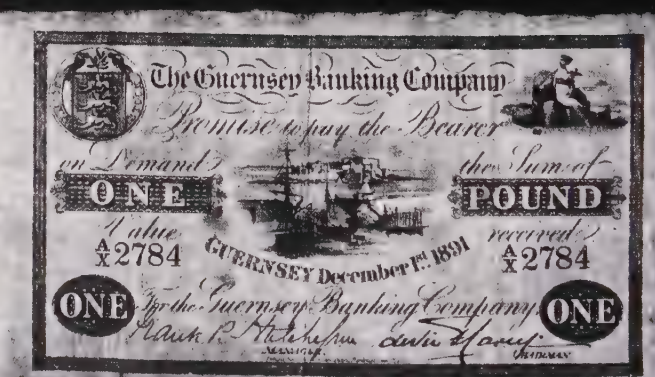 The Guernsey Banking Company
Promise to pay the Bearer
on Demand the Sum of
ONE POUND
Value received
A/X 2784 A/X 2784
GUERNSEY December 1st. 1891
ONE For the Guernsey Banking Company, ONE
MANAGER. CHAIRMAN